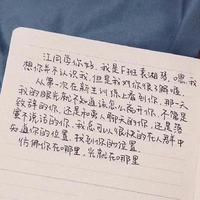 江同学你好,我是F班袁湘琴,嗯,我
想你并不认识我,但是我对你很了解喔,
从第一次在新生训练上看到你,那一天
我的眼光就不知道该怎么离开你,不管是
致辞的你,还是和男人聊天的你,还是沿
着不说话的你,我总可以很快的在人群中
知道你的位置,找到你的方向
仿佛你在哪里,光就在哪里